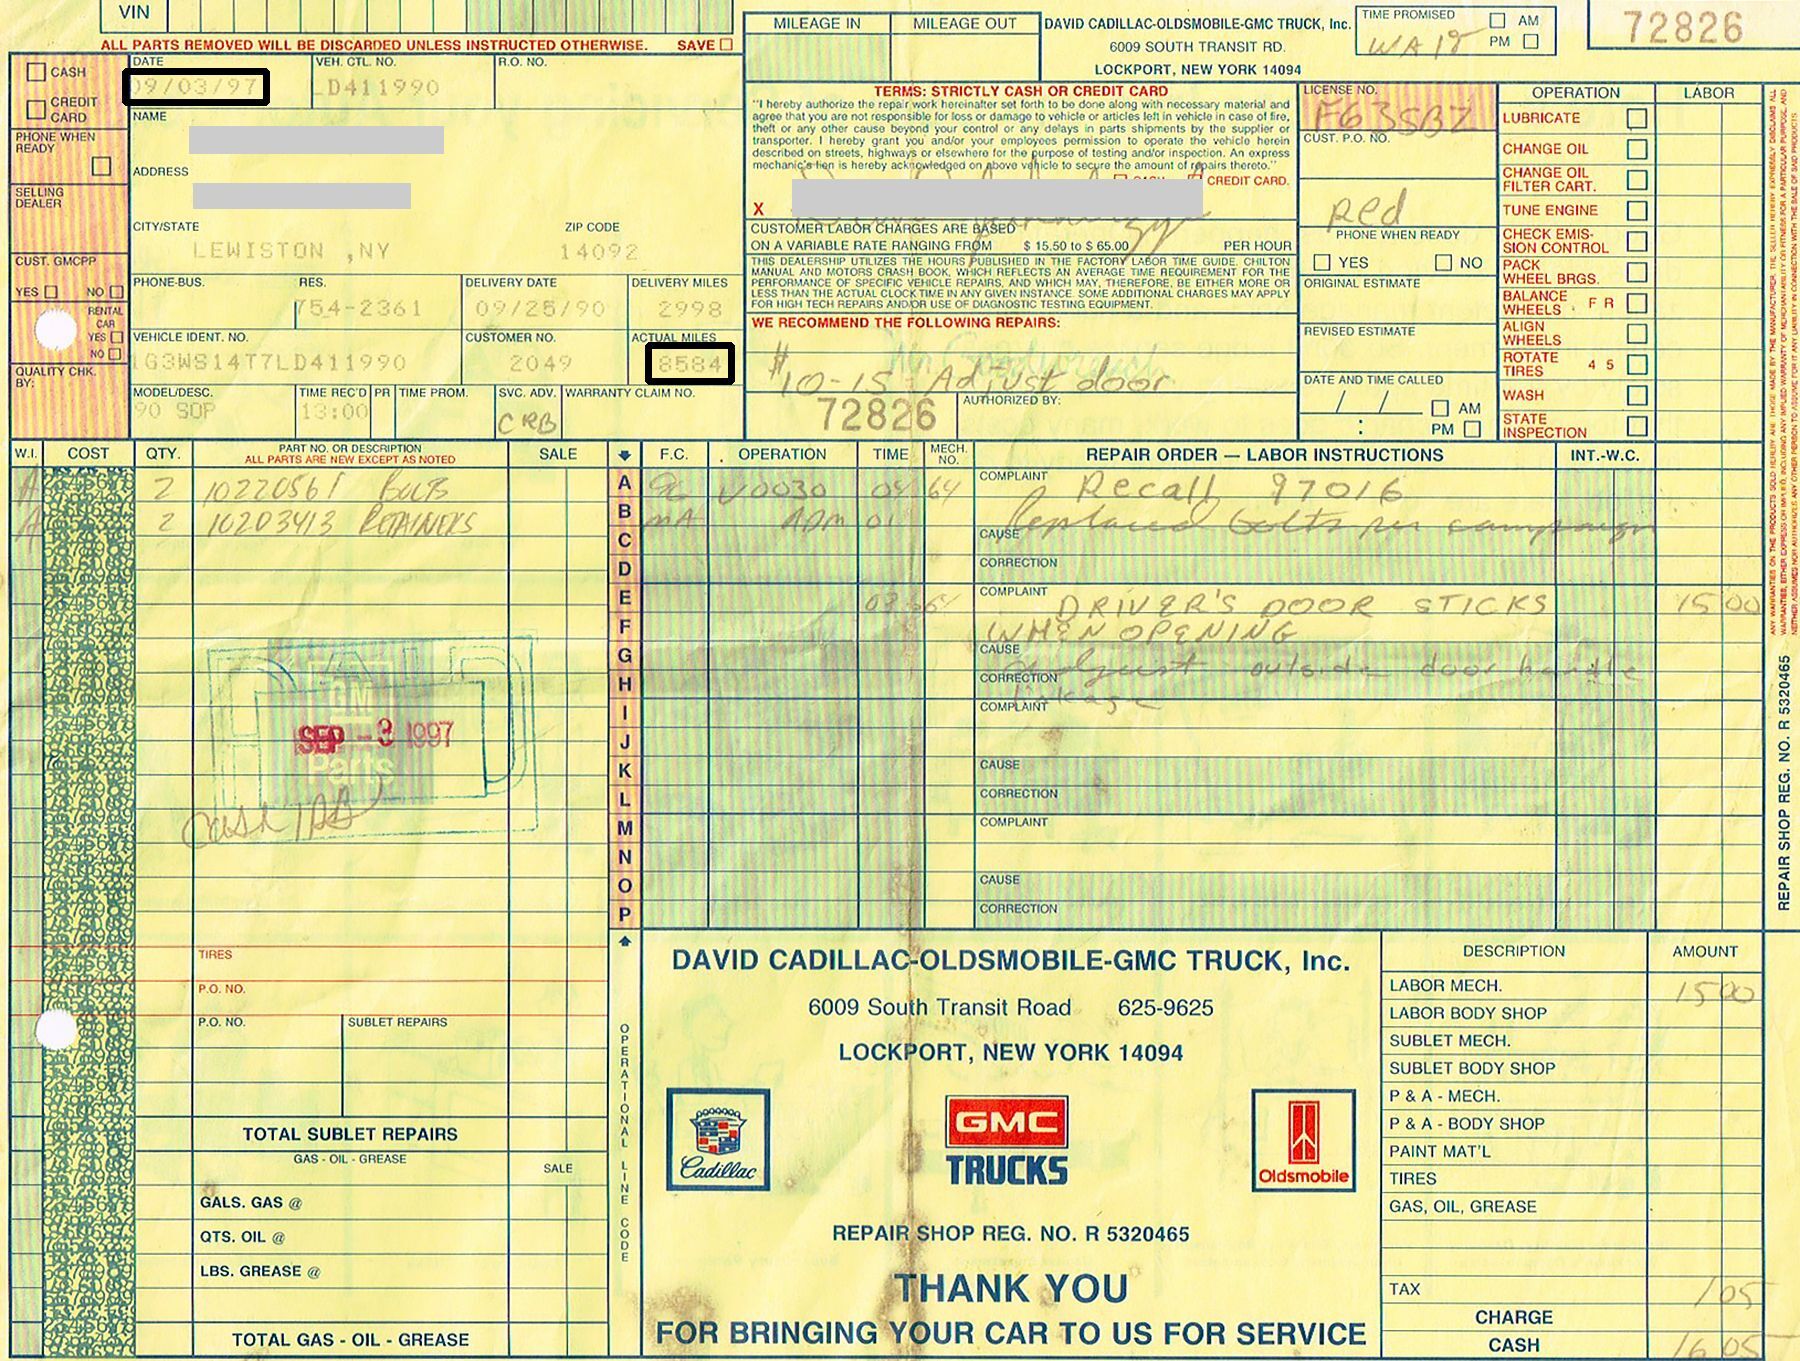 VIN
ALL PARTS REMOVED WILL BE DISCARDED UNLESS INSTRUCTED OTHERWISE. SAVE
MILEAGE IN MILEAGE OUT
DAVID CADILLAC-OLDSMOBILE-GMC TRUCK, Inc.
6009 SOUTH TRANSIT RD.
LOCKPORT, NEW YORK 14094
TIME PROMISED AM PM
72826
CASH
CREDIT CARD
PHONE WHEN READY
SELLING DEALER
CUST. GMCPP
YES NO
RENTAL CAR
YES
NO
QUALITY CHK. BY:
DATE VEH. CTL. NO. R.O. NO.
09/03/97 LD411990
NAME
ADDRESS
CITY/STATE ZIP CODE
LEWISTON ,NY 14092
PHONE-BUS. RES. DELIVERY DATE DELIVERY MILES
754-2361 09/25/90 2998
VEHICLE IDENT. NO. CUSTOMER NO. ACTUAL MILES
1G3WS14T7LD411990 2049 8584
MODEL/DESC. TIME REC'D PR TIME PROM. SVC. ADV. WARRANTY CLAIM NO.
90 SOP 13:00 CRB
TERMS: STRICTLY CASH OR CREDIT CARD
"I hereby authorize the repair work hereinafter set forth to be done along with necessary material and
agree that you are not responsible for loss or damage to vehicle or articles left in vehicle in case of fire,
theft or any other cause beyond your control or any delays in parts shipments by the supplier or
transporter. I hereby grant you and/or your employees permission to operate the vehicle herein
described on streets, highways or elsewhere for the purpose of testing and/or inspection. An express
mechanic's lien is hereby acknowledged on above vehicle to secure the amount of repairs thereto."
CASH CREDIT CARD.
X
CUSTOMER LABOR CHARGES ARE BASED
ON A VARIABLE RATE RANGING FROM $ 15.50 to $ 65.00 PER HOUR
THIS DEALERSHIP UTILIZES THE HOURS PUBLISHED IN THE FACTORY LABOR TIME GUIDE. CHILTON
MANUAL AND MOTORS CRASH BOOK, WHICH REFLECTS AN AVERAGE TIME REQUIREMENT FOR THE
PERFORMANCE OF SPECIFIC VEHICLE REPAIRS, AND WHICH MAY, THEREFORE, BE EITHER MORE OR
LESS THAN THE ACTUAL CLOCK TIME IN ANY GIVEN INSTANCE. SOME ADDITIONAL CHARGES MAY APPLY
FOR HIGH TECH REPAIRS AND/OR USE OF DIAGNOSTIC TESTING EQUIPMENT.
WE RECOMMEND THE FOLLOWING REPAIRS:
$10-15 Adjust door
72826 AUTHORIZED BY:
LICENSE NO.
F635BZ
CUST. P.O. NO.
Red
PHONE WHEN READY
YES NO
ORIGINAL ESTIMATE
REVISED ESTIMATE
DATE AND TIME CALLED
/ / AM
: PM
OPERATION LABOR
LUBRICATE
CHANGE OIL
CHANGE OIL FILTER CART.
TUNE ENGINE
CHECK EMIS-
SION CONTROL
PACK WHEEL BRGS.
BALANCE WHEELS F R
ALIGN WHEELS
ROTATE TIRES 4 5
WASH
STATE INSPECTION
REPAIR SHOP REG. NO. R 5320465
W.I. COST QTY. PART NO. OR DESCRIPTION SALE
ALL PARTS ARE NEW EXCEPT AS NOTED
A 2 10220561 BOLTS
A 2 10203413 RETAINERS
PAID
GM
SEP -3 1997
Parts
Cash
TIRES
P.O. NO.
P.O. NO. SUBLET REPAIRS
TOTAL SUBLET REPAIRS
GAS - OIL - GREASE SALE
GALS. GAS @
QTS. OIL @
LBS. GREASE @
TOTAL GAS - OIL - GREASE
F.C. OPERATION TIME MECH. NO. REPAIR ORDER — LABOR INSTRUCTIONS INT.-W.C.
A
B
C
D
E
F
G
H
I
J
K
L
M
N
O
P
OPERATIONAL LINE CODE
9C V0030 04 64
MA ADM 01
COMPLAINT Recall 97016
Replaced bolts per campaign
CAUSE
CORRECTION
COMPLAINT DRIVER'S DOOR STICKS 15 00
WHEN OPENING
CAUSE
adjust outside door handle
CORRECTION
linkage
COMPLAINT
CAUSE
CORRECTION
COMPLAINT
CAUSE
CORRECTION
DAVID CADILLAC-OLDSMOBILE-GMC TRUCK, Inc.
6009 South Transit Road 625-9625
LOCKPORT, NEW YORK 14094
Cadillac
GMC TRUCKS
Oldsmobile
REPAIR SHOP REG. NO. R 5320465
THANK YOU
FOR BRINGING YOUR CAR TO US FOR SERVICE
DESCRIPTION AMOUNT
LABOR MECH. 15 00
LABOR BODY SHOP
SUBLET MECH.
SUBLET BODY SHOP
P & A - MECH.
P & A - BODY SHOP
PAINT MAT'L
TIRES
GAS, OIL, GREASE
TAX 1 05
CHARGE
CASH 16 05